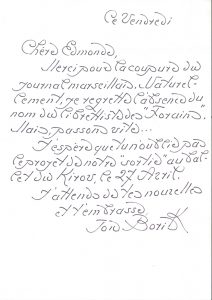 Ce Vendredi
Chère Edmonde,
Merci pour la coupure du
journal marseillais. Naturel-
lement, je regrette l'absence du
nom du librettiste des "Forains".
Mais passons vite...
J'espère que tu n'oublies pas
le projet de notre "sortie" au Bal-
let du Kirov, le 27 Avril.
J'attends de tes nouvelles
et t'embrasse
Ton Boris K